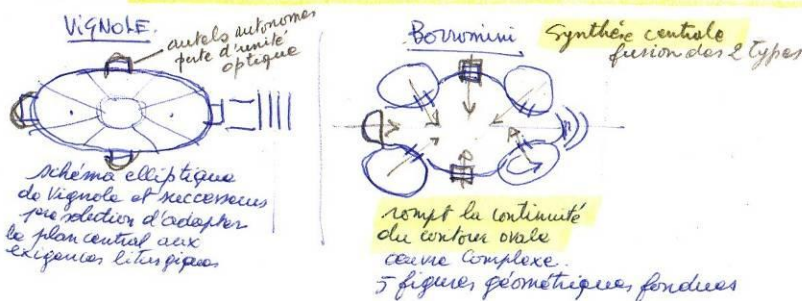 VIGNOLE.
autels autonomes
perte d'unité
optique
schéma elliptique
de Vignole et successeurs
solution d'adapter
le plan central aux
exigences liturgiques
Borromini
Synthèse centrale
fusion des 2 types
rompt la continuité
du contour ovale
œuvre complexe.
5 figures géométriques fondues